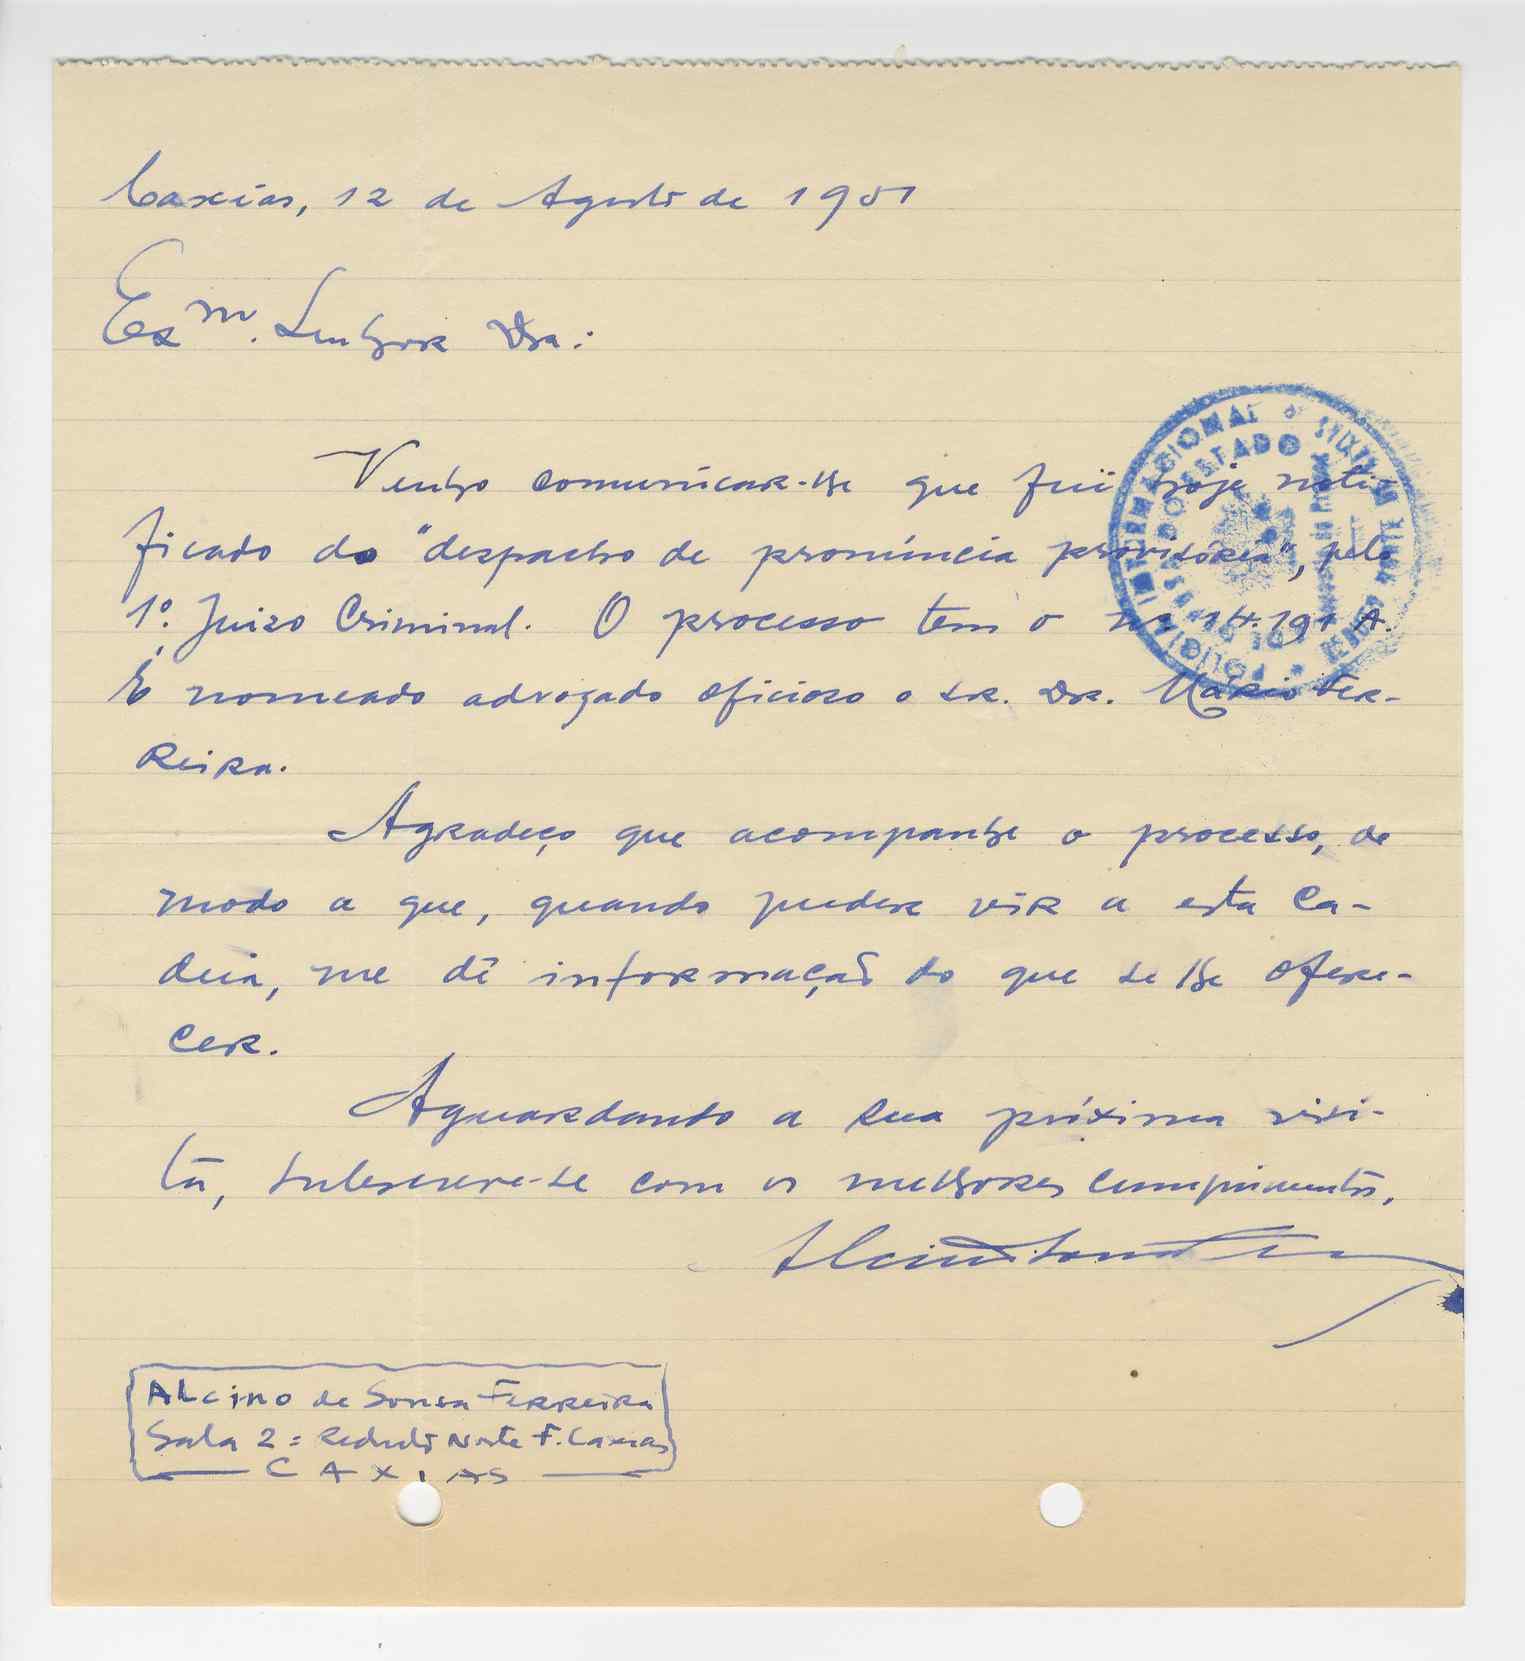 Caxias, 12 de Agosto de 1951
Exmº. Senhor Dr.:
POLICIA INTERNACIONAL
Venho comunicar-lhe que fui hoje noti-
ficado do "despacho de pronúncia provisória", pelo
1º. Juizo Criminal. O processo tem o nº 14.191 A.
É nomeado advogado oficioso o sr. Dr. Mário Fer-
reira.
Agradeço que acompanhe o processo, de
modo a que, quando puder vir a esta Ca-
deia, me dê informação do que se lhe ofere-
cer.
Aguardando a sua próxima visi-
ta, subscreve-se com os melhores cumprimentos,
Alcino de Sousa Ferreira
Sala 2 = Reduto Norte F. Caxias
CAXIAS